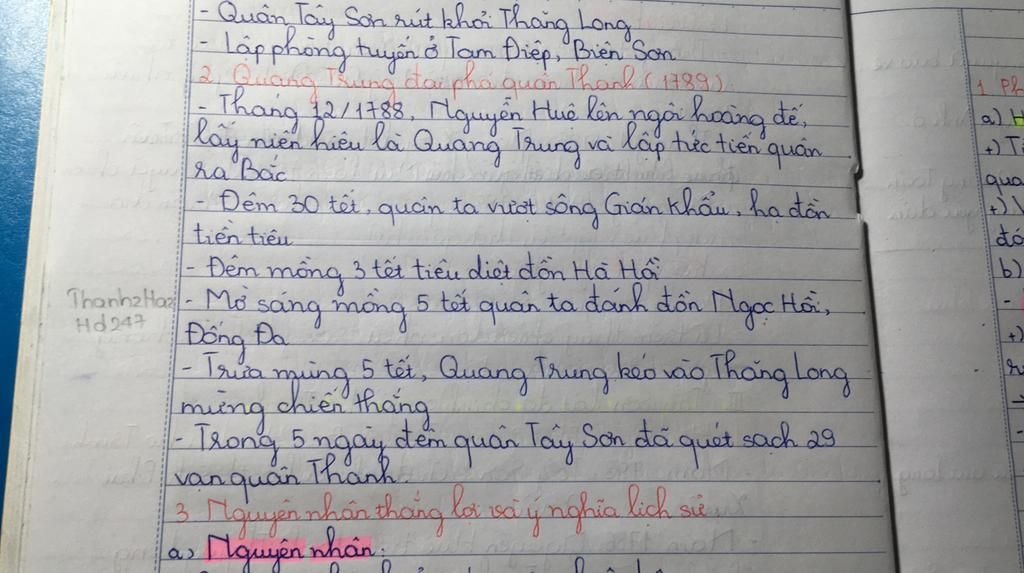 - Quân Tây Sơn rút khỏi Thăng Long
- Lập phòng tuyến ở Tam Điệp, Biện Sơn
2. Quang Trung đại phá quân Thanh (1789).
- Tháng 12/1788, Nguyễn Huệ lên ngôi hoàng đế,
lấy niên hiệu là Quang Trung và lập tức tiến quân
ra Bắc
- Đêm 30 tết, quân ta vượt sông Gián Khẩu, hạ đồn
tiền tiêu
- Đêm mồng 3 tết tiêu diệt đồn Hà Hồi
- Mờ sáng mồng 5 tết quân ta đánh đồn Ngọc Hồi,
Đống Đa
- Trưa mùng 5 tết, Quang Trung kéo vào Thăng Long
mừng chiến thắng
- Trong 5 ngày đêm quân Tây Sơn đã quét sạch 29
vạn quân Thanh.
3 Nguyên nhân thắng lợi và ý nghĩa lịch sử
a) Nguyên nhân:
Thanh2Ha2
Hd247
1 Ph
a) H
+) T
qua
+) V
đó
b)
-
+)